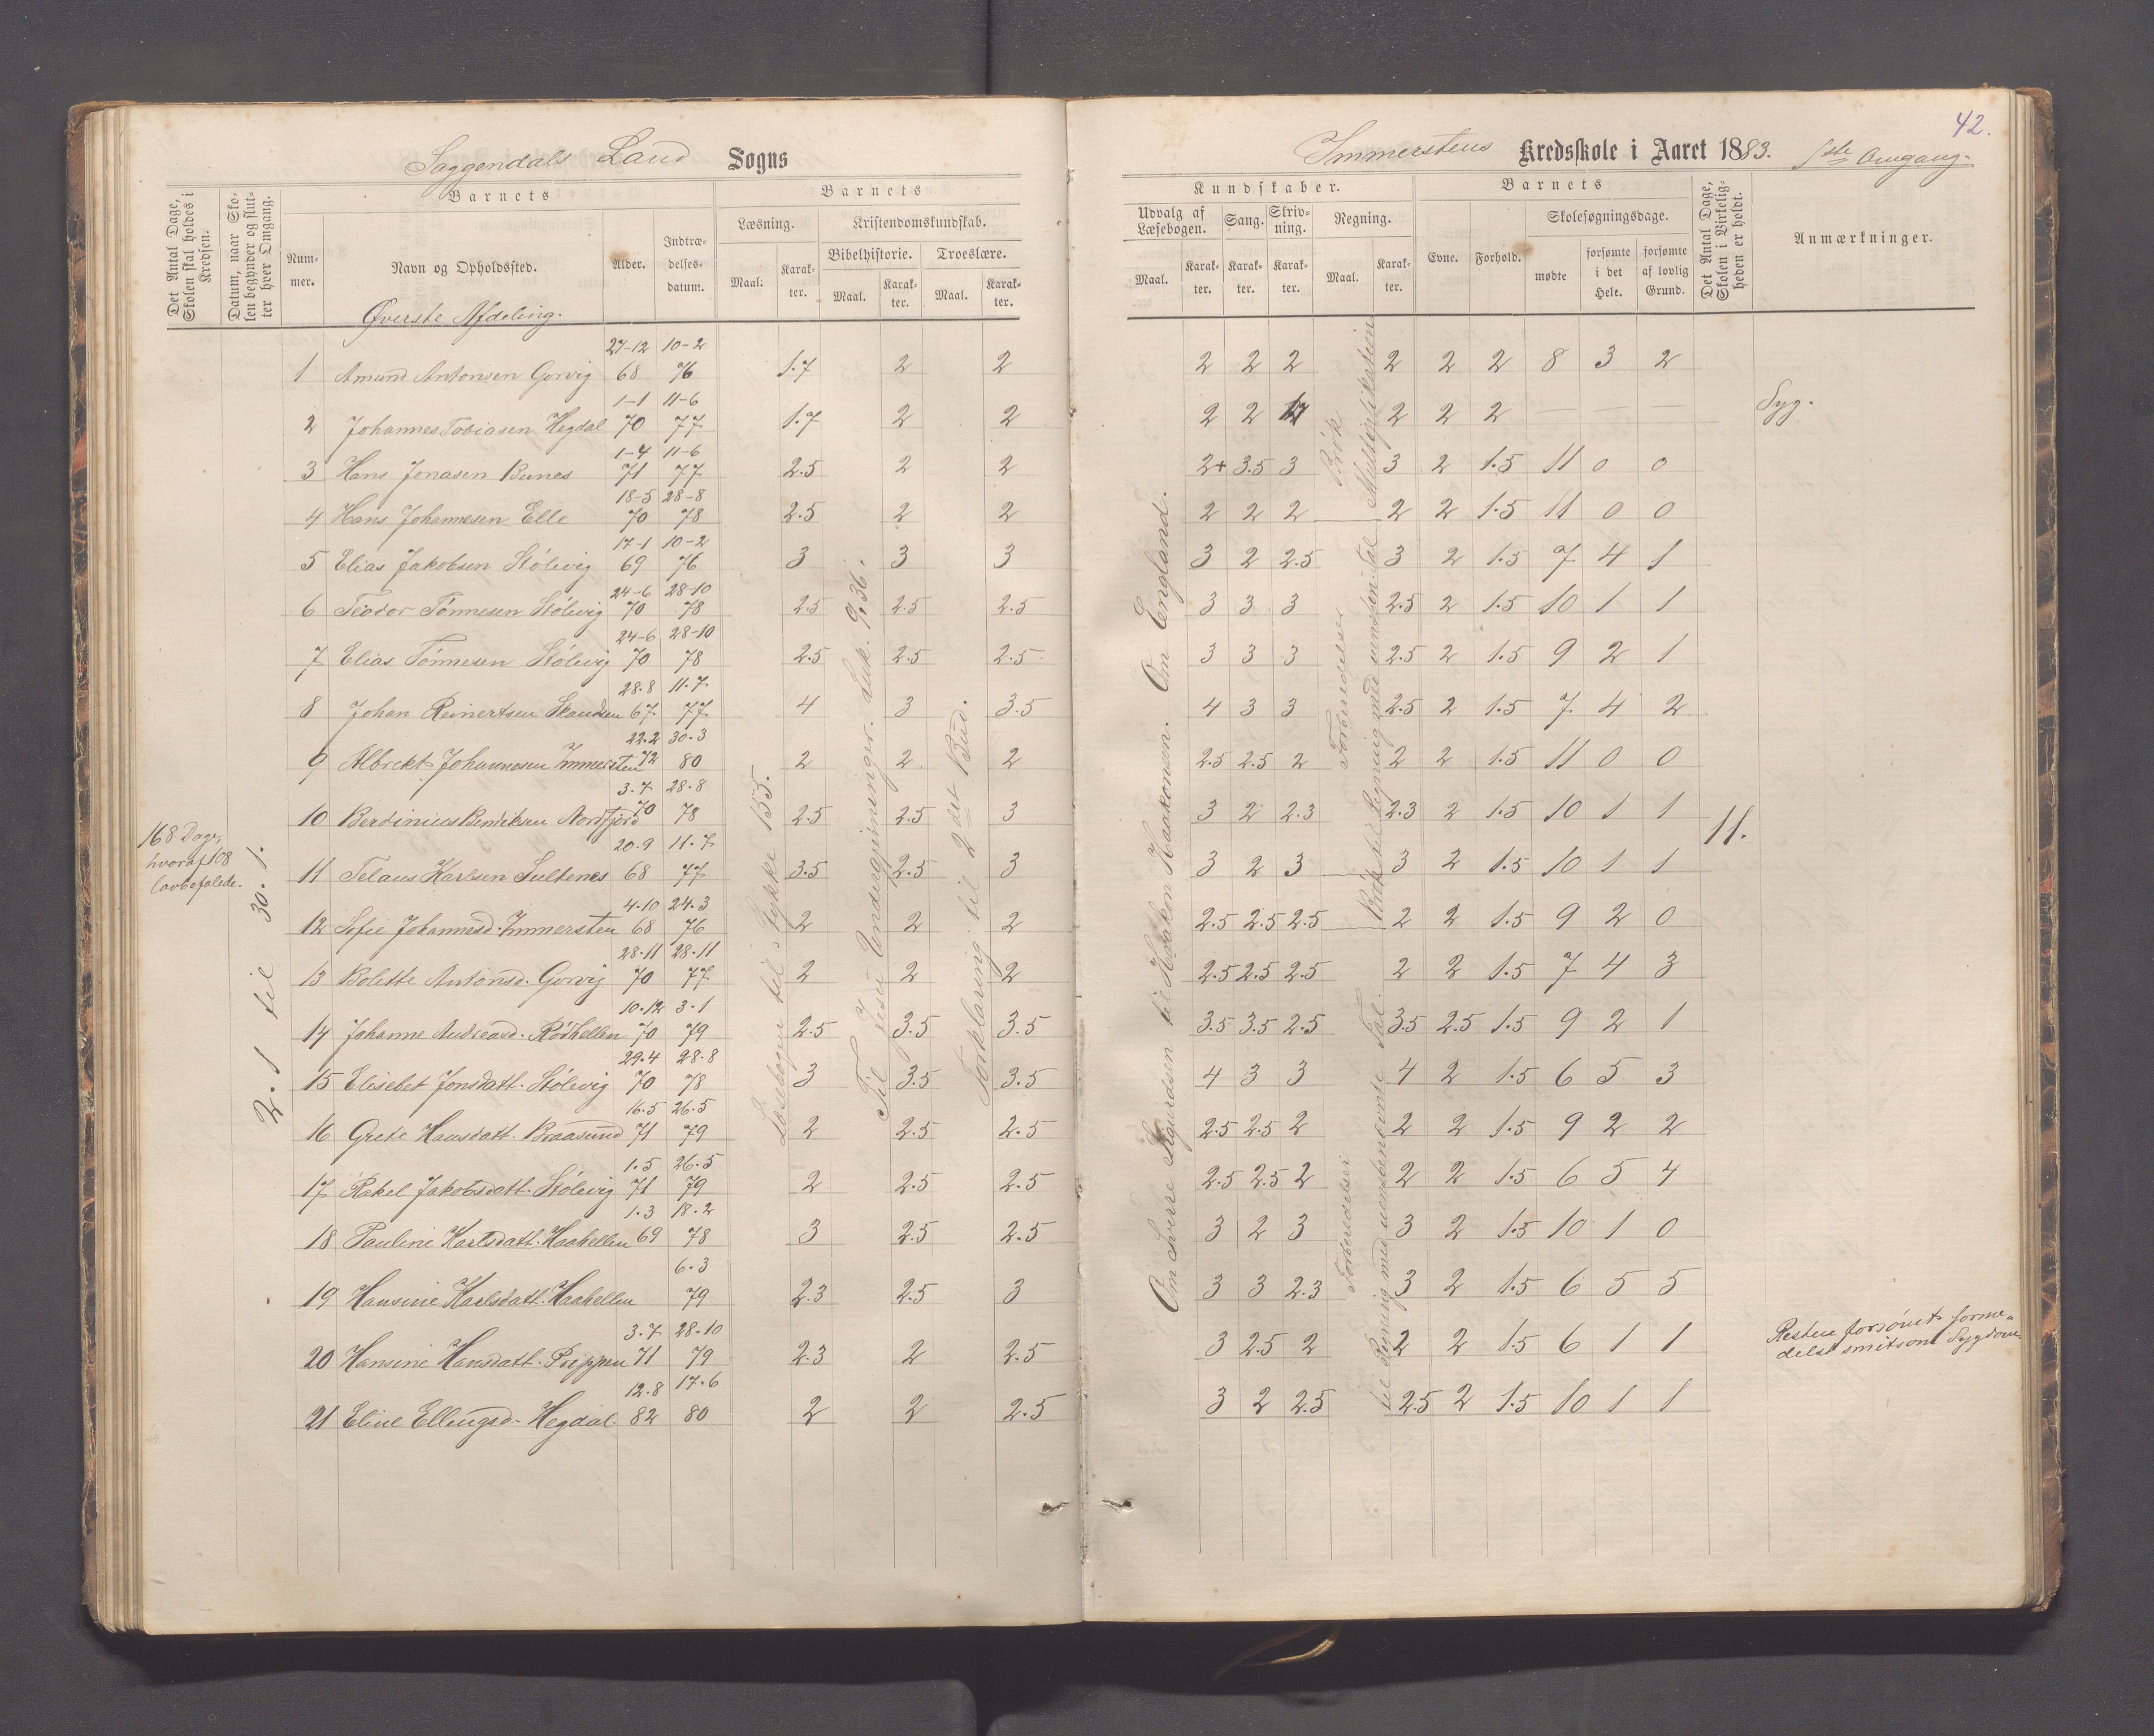 Saggendals Land Sogns
Immerstens Kredsskole i Aaret 1883. 1ste Omgang.
42.
Det Antal Dage, Skolen skal holdes i Kredsen.
Datum, naar Skolen begynder og slutter hver Omgang.
Barnets
Nummer.
Navn og Opholdssted.
Alder.
Indtrædelsesdatum.
Barnets
Læsning.
Kristendomskundskab.
Bibelhistorie.
Troeslære.
Maal.
Karakter.
Maal.
Karakter.
Maal.
Karakter.
Kundskaber.
Udvalg af Læsebogen.
Sang.
Skrivning.
Regning.
Maal.
Karakter.
Karakter.
Karakter.
Maal.
Karakter.
Barnets
Evne.
Forhold.
Skolesøgningsdage.
mødte
forsømte i det Hele.
forsømte af lovlig Grund.
Det Antal Dage, Skolen i Virkeligheden er holdt.
Anmærkninger.
Øverste Afdeling.
168 Dage, hvoraf 108 lovbefalede.
2.1 til 30.1.
1 Amund Antonsen Gorvig 27-12 68 10-2 76 1.7 2 2 2 2 2 2 2 2 8 3 2
2 Johannes Tobiasen Hegdal 1-1 70 11-6 77 1.7 2 2 2 2 1.7 2 2 2 — — — Syg.
3 Hans Jonasen Bunes 1-4 71 11-6 77 2.5 2 2 2+ 3.5 3 3 2 1.5 11 0 0
4 Hans Johannesen Elle 18-5 70 28-8 78 2.5 2 2 2 2 2 2 2 1.5 11 0 0
5 Elias Jakobsen Stölevig 17-1 69 10-2 76 3 3 3 3 2 2.5 3 2 1.5 7 4 1
6 Teodor Tönnesen Stölevig 24-6 70 28-10 78 2.5 2.5 2.5 3 3 3 2.5 2 1.5 10 1 1
7 Elias Tönnesen Stölevig 24-6 70 28-10 78 2.5 2.5 2.5 3 3 3 2.5 2 1.5 9 2 1
8 Johan Reinertsen Skanden 28.8 67 11.7. 77 4 3 3.5 4 3 3 2.5 2 1.5 7 4 2
9 Albrekt Johannesen Immersten 22.2 72 30.3 80 2 2 2 2.5 2.5 2 2 2 1.5 11 0 0
10 Berdinius Bendiksen Nordfjord 3.7 70 28.8 78 2.5 2.5 3 3 2 2.3 2.3 2 1.5 10 1 1
11.
11 Telaus Karlsen Sultenes 20.9 68 11.7 77 3.5 2.5 3 3 2 3 3 2 1.5 10 1 1
12 Sofie Johannesd. Immersten 4.10 68 24.3 76 2 2 2 2.5 2.5 2.5 2 2 1.5 9 2 0
13 Bolette Antonsd. Gorvig 28.11 70 28.11 77 2 2 2 2.5 2.5 2.5 2 2 1.5 7 4 3
14 Johanne Andreasd. Rödhellen 10.12 70 3.1 79 2.5 3.5 3.5 3.5 3.5 2.5 3.5 2.5 1.5 9 2 1
15 Elisebet Jonsdatt. Stölevig 29.4 70 28.8 78 3 3.5 3.5 4 3 3 4 2 1.5 6 5 3
16 Grete Hansdatt. Braasund 16.5 71 26.5 79 2 2.5 2.5 2.5 2.5 2 2 2 1.5 9 2 2
17 Rakel Jakobsdatt. Stölevig 1.5 71 26.5 79 2 2.5 2.5 2.5 2.5 2 2 2 1.5 6 5 4
18 Pauline Karlsdatt. Haahellen 1.3 69 18.2 78 3 2.5 2.5 3 2 3 3 2 1.5 10 1 0
19 Hansine Karlsdatt. Haahellen 6.3 79 2.3 2.5 3 3 3 2.3 3 2 1.5 6 5 5
20 Hansine Hansdatt. Prippen 3.7 71 28.10 79 2.3 2 2.5 3 2.5 2 2 2 1.5 6 1 1 Resten forsömt formedelst smitsom Sygdom
21 Eline Ellingsd. Hegdal 12.8 82 17.6 80 2 2 2.5 3 2 2.5 2.5 2 1.5 10 1 1
Læsebogen til Stykke 155.
Til Jesu Undergjerninger. Luk. 9.36.
Forklaring til 2det Bud.
Om Sverre Sigurdsen til Haakon Haakonsen. Om England.
Brök Multiplikation
Forberedelser til Regning med uensben. Tal Brök
Forberedelser til Regning med uensbenævnte Tal.